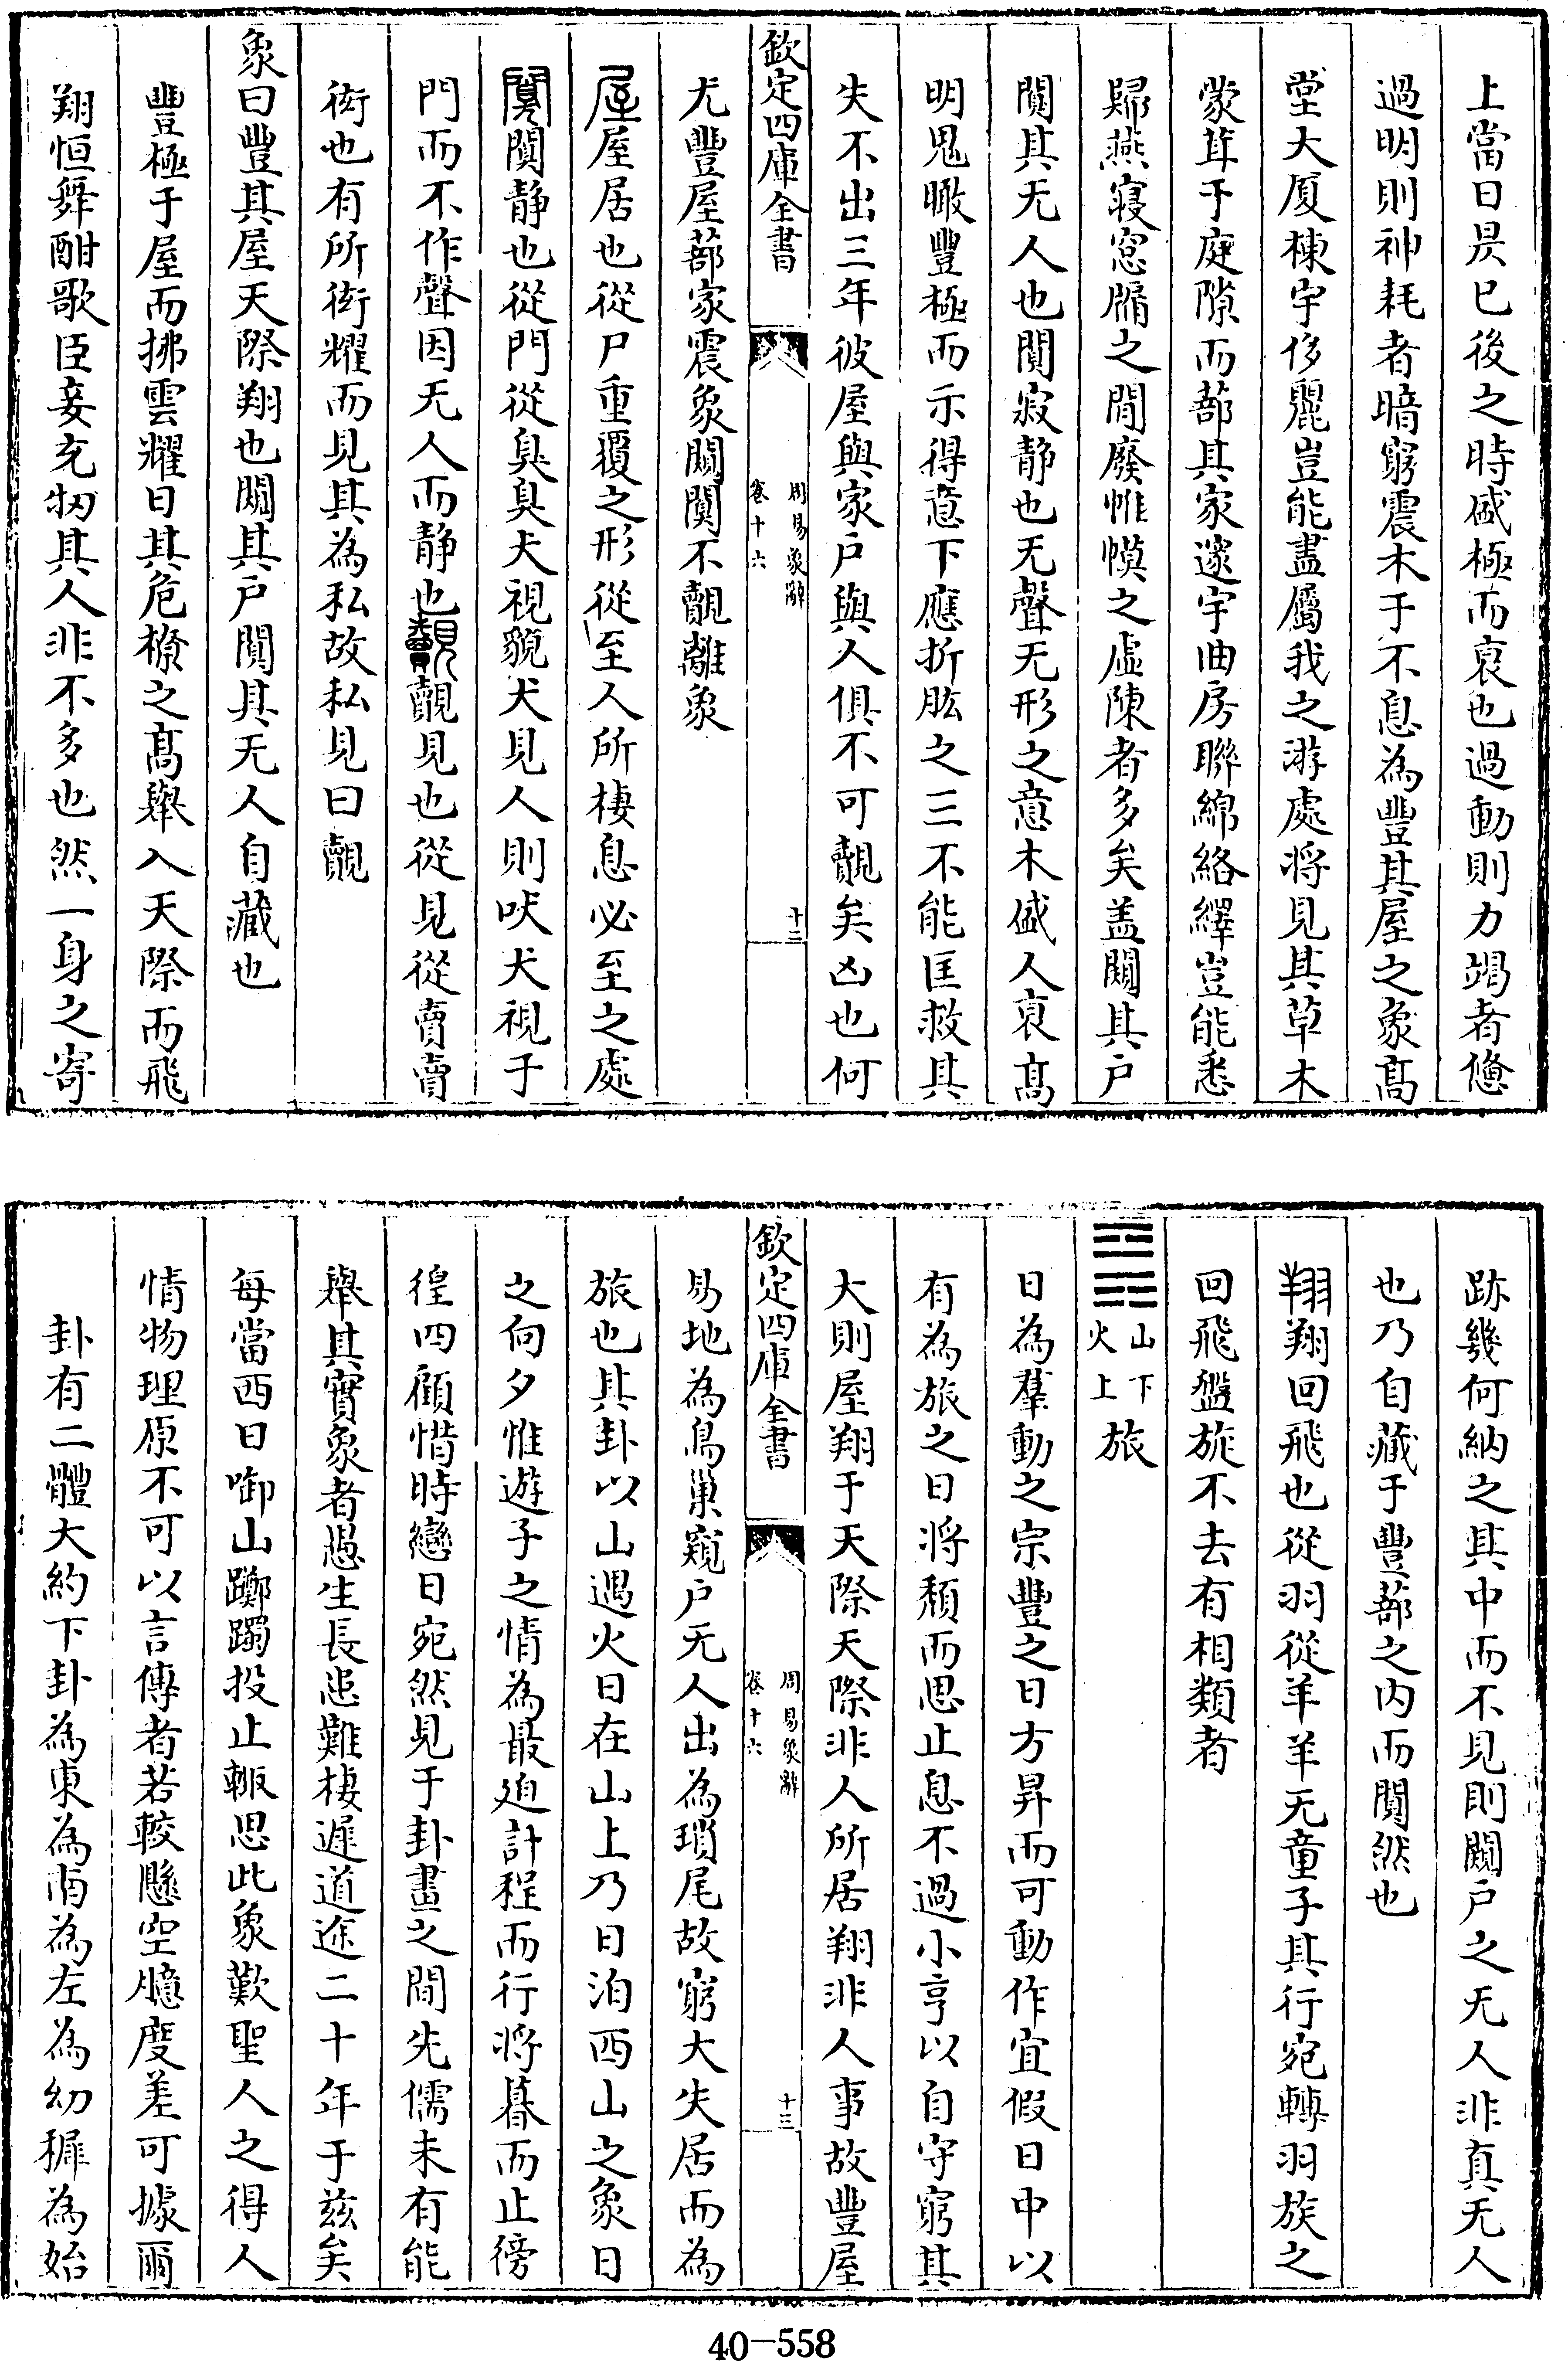 上當日昃已後之時盛極而衰也過動則力竭者憊
過明則神耗者暗窮震木于不息為豐其屋之象髙
堂大厦棟宇侈麗豈能盡屬我之游處将見其草木
蒙茸于庭隙而蔀其家邃宇曲房聯綿絡繹豈能悉
歸燕寝窓牖之間廢帷幙之虛陳者多矣盖闚其户
闃其无人也闃寂静也无聲无形之意木盛人衰髙
明鬼瞰豐極而示得意下應折肱之三不能匡救其
失不出三年彼屋與家户與人俱不可覿矣凶也何
欽定四庫全書
周易象辭
卷十六
十二
尤豐屋蔀家震象闚闃不覿離象
屋屋居也從尸重覆之形從至人所棲息必至之處
闃闃静也從門從狊狊犬視貌犬見人則吠犬視于
門而不作聲因无人而静也覿覿見也從見從賣賣
衒也有所衒耀而見其為私故私見曰覿
象曰豐其屋天際翔也闚其户闃其无人自藏也
豐極于屋而拂雲耀日其危橑之髙舉入天際而飛
翔恒舞酣歌臣妾充牣其人非不多也然一身之寄
跡幾何納之其中而不見則闚户之无人非真无人
也乃自藏于豐蔀之内而闃然也
翔翔回飛也從羽從羊羊无童子其行宛轉羽族之
回飛盤旋不去有相類者
䷷
山下
火上
旅
日為羣動之宗豐之日方昇而可動作宜假日中以
有為旅之日将頽而思止息不過小亨以自守窮其
大則屋翔于天際天際非人所居翔非人事故豐屋
欽定四庫全書
周易象辭
卷十六
十三
易地為鳥巢窺户无人出為瑣尾故窮大失居而為
旅也其卦以山遇火日在山上乃日泊西山之象日
之向夕惟遊子之情為最迫計程而行将暮而止徬
徨四顧惜時戀日宛然見于卦畫之間先儒未有能
舉其實象者愚生長患難棲遲道途二十年于兹矣
每當西日啣山躑躅投止輒思此象歎聖人之得人
情物理原不可以言傳者若較懸空臆度差可據爾
卦有二體大約下卦為東為南為左為幼穉為始
40-558